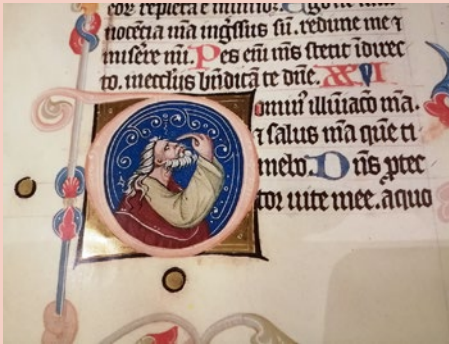 nocētia mā ingſſus sū. redime me ⁊
miſere mī. Pes eni mſ stetit i direc
to. in eccliis bn̄dicā te dn̄e. XXVI
Dominꝰ illūiaco mā.
⁊ salus mā quē ti
mebo. Dn̄s ꝓtec
tor uite mee. a quo